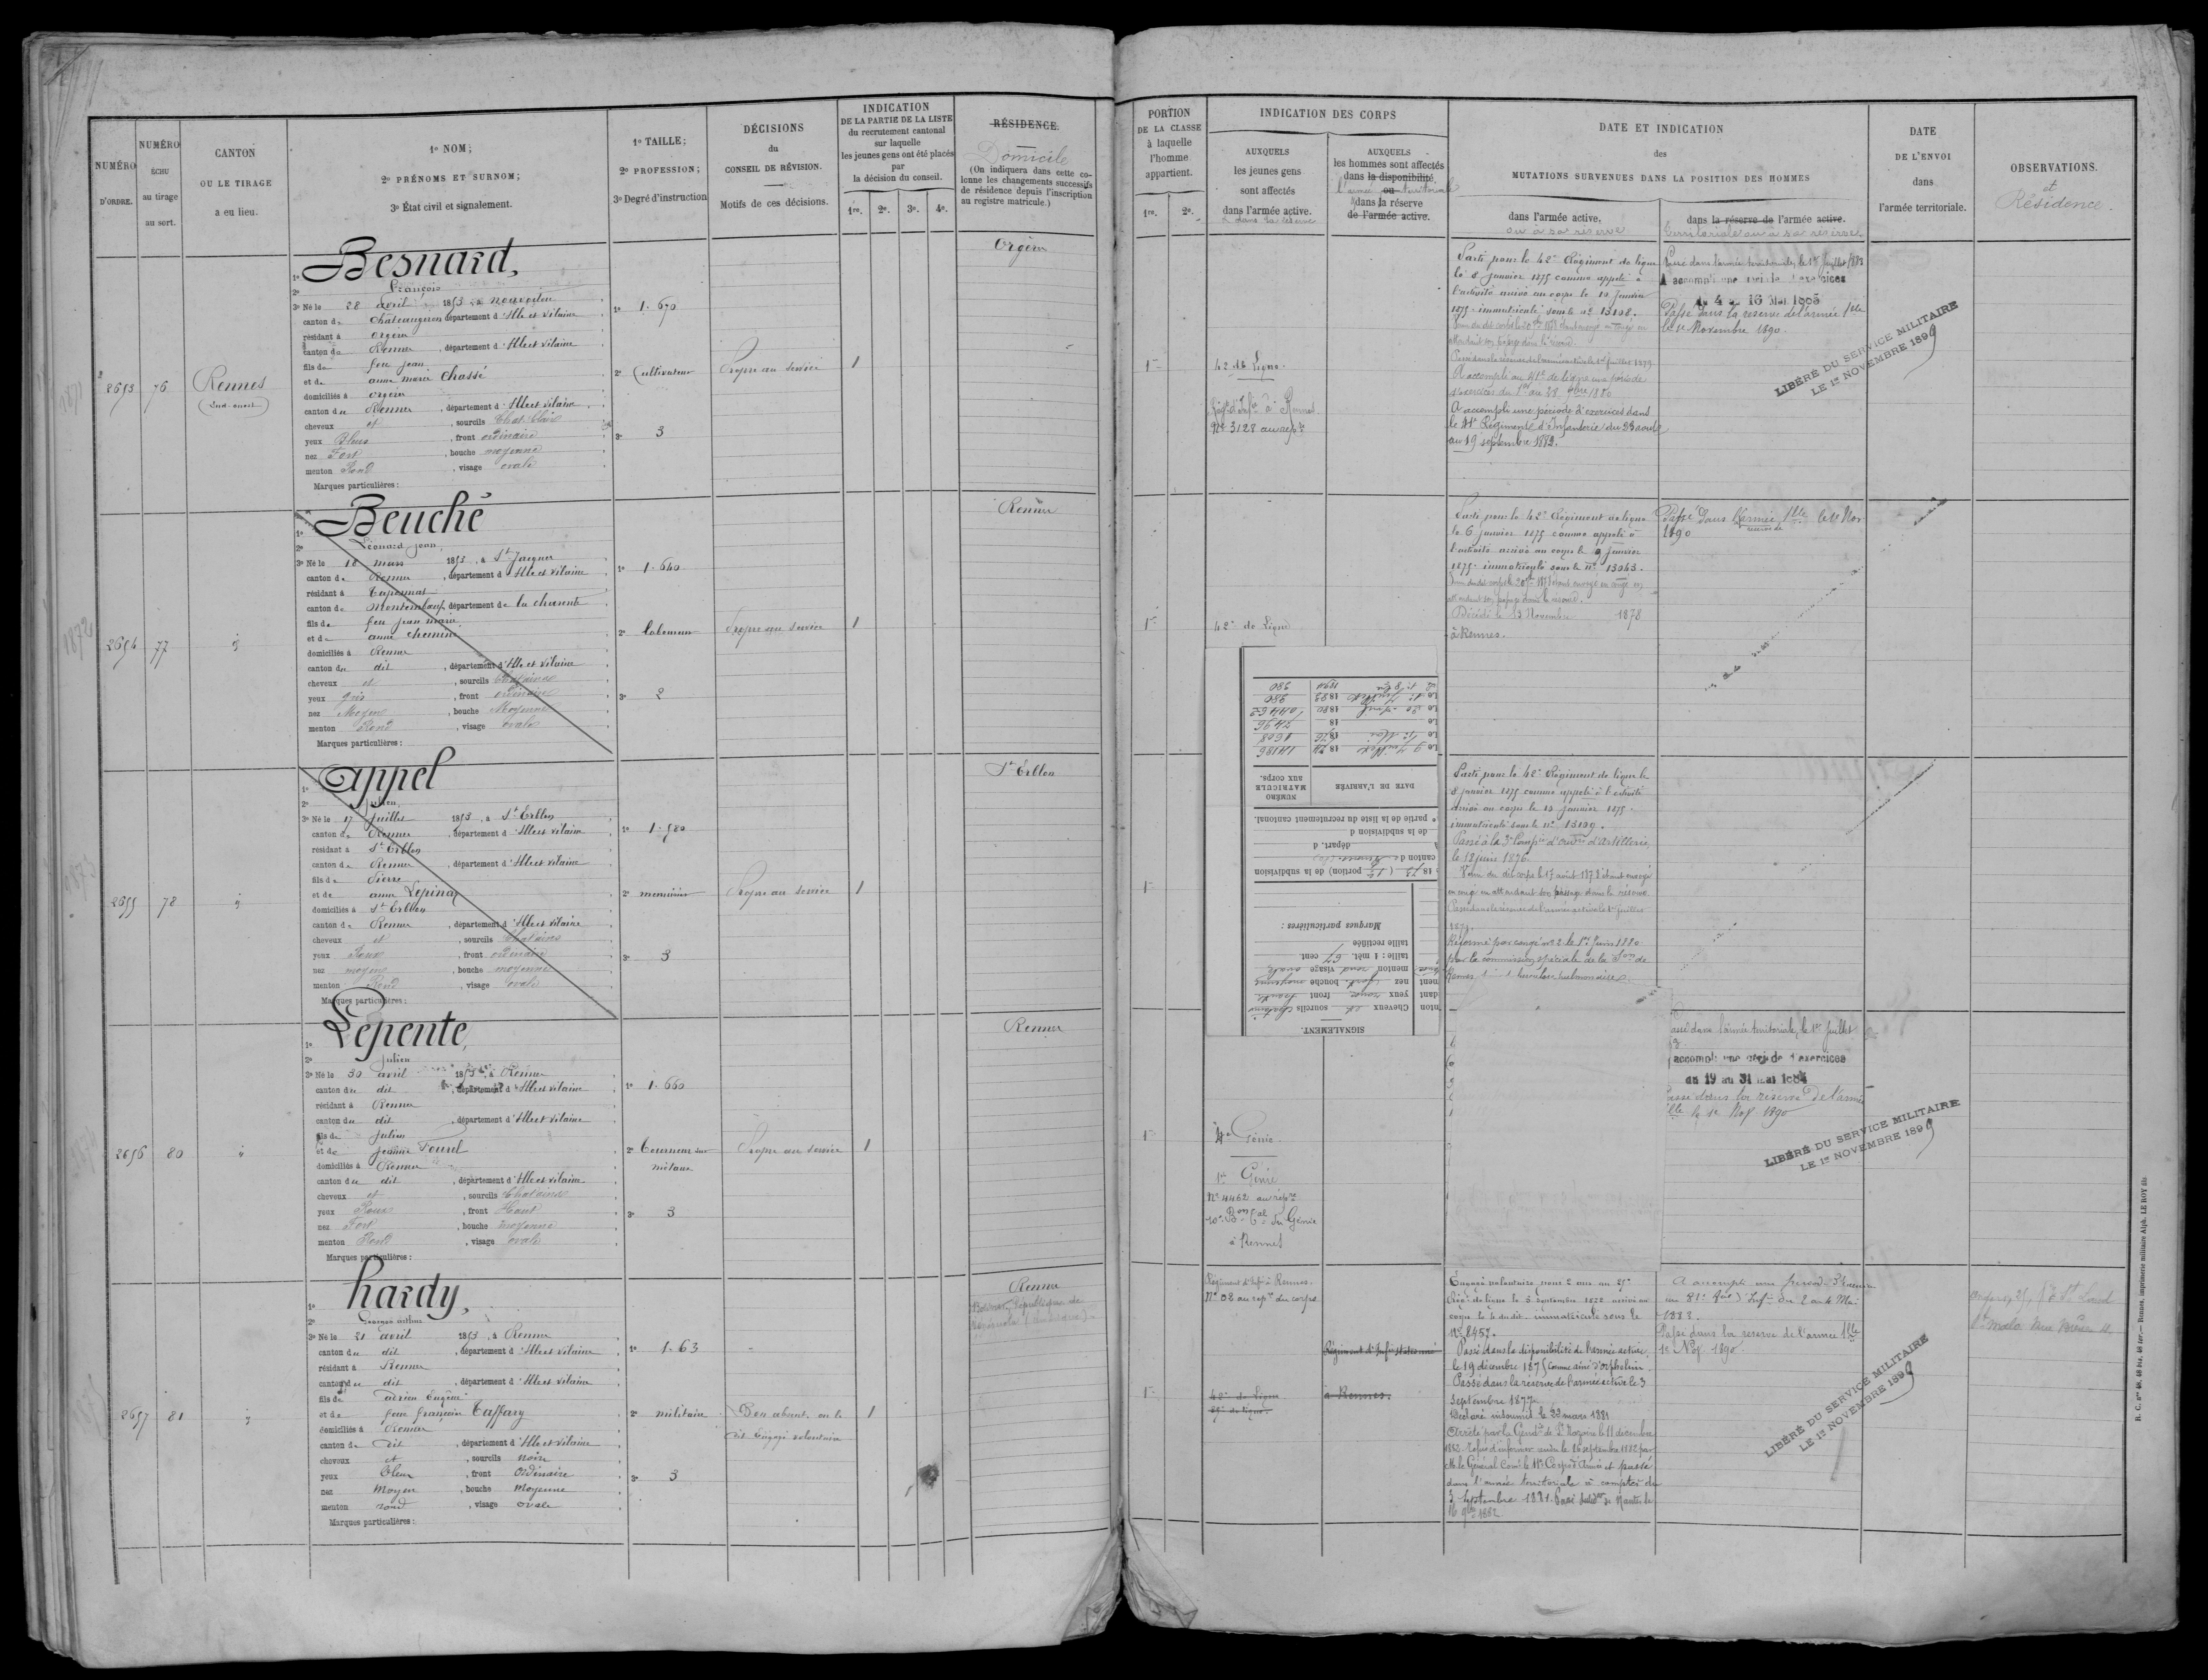 NUMÉRO
D'ORDRE.
NUMÉRO
ÉCHU
au tirage
au sort.
CANTON
OU LE TIRAGE
a eu lieu.
1º NOM;
2º PRÉNOMS ET SURNOM;
3º État civil et signalement.
1º TAILLE;
2º PROFESSION;
3º Degré d'instruction
DÉCISIONS
du
CONSEIL DE RÉVISION.
Motifs de ces décisions.
INDICATION
DE LA PARTIE DE LA LISTE
du recrutement cantonal
sur laquelle
les jeunes gens ont été placés
par
la décision du conseil.
1re. 2e. 3e. 4e.
RÉSIDENCE.
Domicile
(On indiquera dans cette co-
lonne les changements successifs
de résidence depuis l'inscription
au registre matricule.)
2653 76 Rennes
(Sud-ouest)
Besnard,
François
3º Né le 28 avril 1853, à Nouvoitou
canton de Châteaugiron département d'Ille et Vilaine
résidant à Orgères
canton de Rennes, département d'Ille et Vilaine
fils de feu Jean
et de anne marie Chassé
domiciliés à Orgères
canton de Rennes, département d'Ille et Vilaine
cheveux et, sourcils Chat. Clair
yeux Bleus, front ordinaire
nez Fort, bouche moyenne
menton Rond, visage ovale
Marques particulières:
1º 1.670
2º Cultivateur
3º 3
Propre au service
1
Orgères
2654 77
Beuché
Léonard Jean,
3º Né le 18 mars 1853, à St Jacques
canton de Rennes, département d'Ille et Vilaine
résidant à
canton de Montembœuf, département de la charente
fils de feu jean marie
et de anne chemin
domiciliés à Rennes
canton du dit, département d'Ille et Vilaine
cheveux et, sourcils Châtaires
yeux gris, front ordinaire
nez Moyen, bouche Moyenne
menton Rond, visage ovale
Marques particulières:
1º 1.640
2º laboureur
3º 2
Propre au service
1
Rennes
2655 78
appel
Julien,
3º Né le 17 juillet 1853, à St Erblon
canton de Rennes, département d'Ille et Vilaine
résidant à St Erblon
canton de Rennes, département d'Ille et Vilaine
fils de Pierre
et de anne Lepinay
domiciliés à St Erblon
canton de Rennes, département d'Ille et Vilaine
cheveux et, sourcils Chataires
yeux Roux, front ordinaire
nez moyen, bouche moyenne
menton Rond, visage ovale
Marques particulières:
1º 1.580
2º menuisier
3º 3
Propre au service
1
St Erblon
2656 80
Lepente,
Julien
3º Né le 30 avril 1853, à Rennes
canton du dit, département d'Ille et Vilaine
résidant à Rennes
canton du dit, département d'Ille et Vilaine
fils de Julien
et de Jeanne Fourel
domiciliés à Rennes
canton du dit, département d'Ille et Vilaine
cheveux et, sourcils Chataires
yeux Roux, front Haut
nez Fort, bouche moyenne
menton Rond, visage ovale
Marques particulières:
1º 1.660
2º Tourneur sur
métaux
3º 3
Propre au service
1
Rennes
2657 81
hardy,
Georges arthur
3º Né le 21 avril 1853, à Rennes
canton du dit, département d'Ille et Vilaine
résidant à Rennes
canton du dit, département d'Ille et Vilaine
fils de adrien Eugène
et de feue françoise Taffary
domiciliés à Rennes
canton de dit, département d'Ille et Vilaine
cheveux et, sourcils noirs
yeux bleus, front Ordinaire
nez Moyen, bouche Moyenne
menton rond, visage ovale
Marques particulières:
1º 1.63
2º militaire
3º 3
Bon absent, on le
dit Engagé volontaire
1
Rennes
République de
PORTION
DE LA CLASSE
à laquelle
l'homme
appartient.
1re. 2e.
INDICATION DES CORPS
AUXQUELS
les jeunes gens
sont affectés
dans l'armée active.
et dans la réserve
AUXQUELS
les hommes sont affectés
dans la disponibilité
l'armée ou territoriale
dans la réserve
de l'armée active.
DATE ET INDICATION
des
MUTATIONS SURVENUES DANS LA POSITION DES HOMMES
dans l'armée active.
ou à sa réserve
dans la réserve de l'armée active.
territoriale ou à sa réserve
DATE
DE L'ENVOI
dans
l'armée territoriale.
OBSERVATIONS.
et
Résidence.
1re
42e de Ligne
Régt d'Infie à Rennes
Nº 3128 au répre
Parti pour le 42e Régiment de ligne
le 8 janvier 1875 comme appelé à
l'activité arrivé au corps le 10 janvier
1875 immatriculé sous le nº 13108.
attendant son passage dans la réserve
Passé dans la réserve de l'armée active le 1er juillet 1879
A accompli au 41e de ligne une période
d'exercices du 1er au 28 9bre 1880
A accompli une période d'exercices dans
le 41e Régiment d'Infanterie du 23 août
au 19 septembre 1882.
Passé dans l'armée territoriale, le 1er Juillet 1883
A accompli une période d'exercices
du 4 au 16 Mai 1885
Passé dans la réserve de l'armée tlle
le 1e Novembre 1890.
LIBÉRÉ DU SERVICE MILITAIRE
LE 1er NOVEMBRE 1899
1re
42e de Ligne
Parti pour le 42e Régiment de ligne
le 6 janvier 1875 comme appelé à
l'activité arrivé au corps le 9 janvier
1875 immatriculé sous le nº 13043.
attendant son passage dans la réserve.
Décédé le 13 Novembre 1878
à Rennes.
Passé dans l'armée tlle le 1e Nov
réserve
1890
1re
SIGNALEMENT.
Cheveux et sourcils chatains
yeux roux front
nez fort bouche moyenne
menton rond visage ovale
taille: 1 mèt. 67 cent.
taille rectifiée
Marques particulières:
18 73 (1re portion) de la subdivision
canton de
départ. d
de la subdivision d
e partie de la liste du recrutement cantonal.
DATE DE L'ARRIVÉE
NUMÉRO
MATRICULE
aux corps.
Parti pour le 42e Régiment de ligne le
8 janvier 1875 comme appelé à l'activité
arrivé au corps le 10 janvier 1875
immatriculé sous le nº 13109.
Passé à la 3e Compie d'ouvrs d'Artillerie,
le 12 juin 1876.
Venu du dit corps le 17 août 1878 étant envoyé
en congé en attendant son passage dans la réserve.
Passé dans la réserve de l'armée active le 1er juillet
1879.
Réformé par congé nº 2 le 1er Juin 1880
par la commission spéciale de la Son de
Rennes
1re
Génie
1er Génie
Nº 4462 au répre
10e Bon du Génie
à Rennes
assé dans l'armée territoriale, le 1er juillet
accompli une période d'exercices
du 19 au 31 mai 1884
assé dans la réserve de l'armée
tlle le 1e Nov 1890
LIBÉRÉ DU SERVICE MILITAIRE
LE 1er NOVEMBRE 1899
1re
Régiment d'Infie à Rennes.
Nº 08 au repre du corps
42e de Ligne
25e de ligne.
à Rennes.
Engagé volontaire pour 2 ans au 25e
Régt de ligne le 3 septembre 1872 arrivé au
corps le 4 du dit. immatriculé sous le
Nº 8457.
Passé dans la disponibilité de l'armée active
le 19 décembre 1875 comme aîné d'orphelins
Passé dans la réserve de l'armée active le 3
septembre 1877.
Déclaré insoumis le 22 mars 1881
Arrêté par la Gendie de St Nazaire le 11 décembre
1882. Refus d'informer rendu le 16 septembre 1882 par
Mr le Général Comt le 11e Corps d'Armée et passé
dans l'armée territoriale à compter du
3 Septembre 1881. Passé de Nantes le
16 9bre 1882
A accompli une période d'exercice
au 81e Régt d'Infie du 2 au 14 Mai
1883.
Passé dans la reserve de l'armée tlle
1e Nov. 1890.
LIBÉRÉ DU SERVICE MILITAIRE
LE 1er NOVEMBRE 1899
R. C. nos 46, 46 bis, 46 ter. — Rennes, imprimerie militaire Alph. LE ROY fils